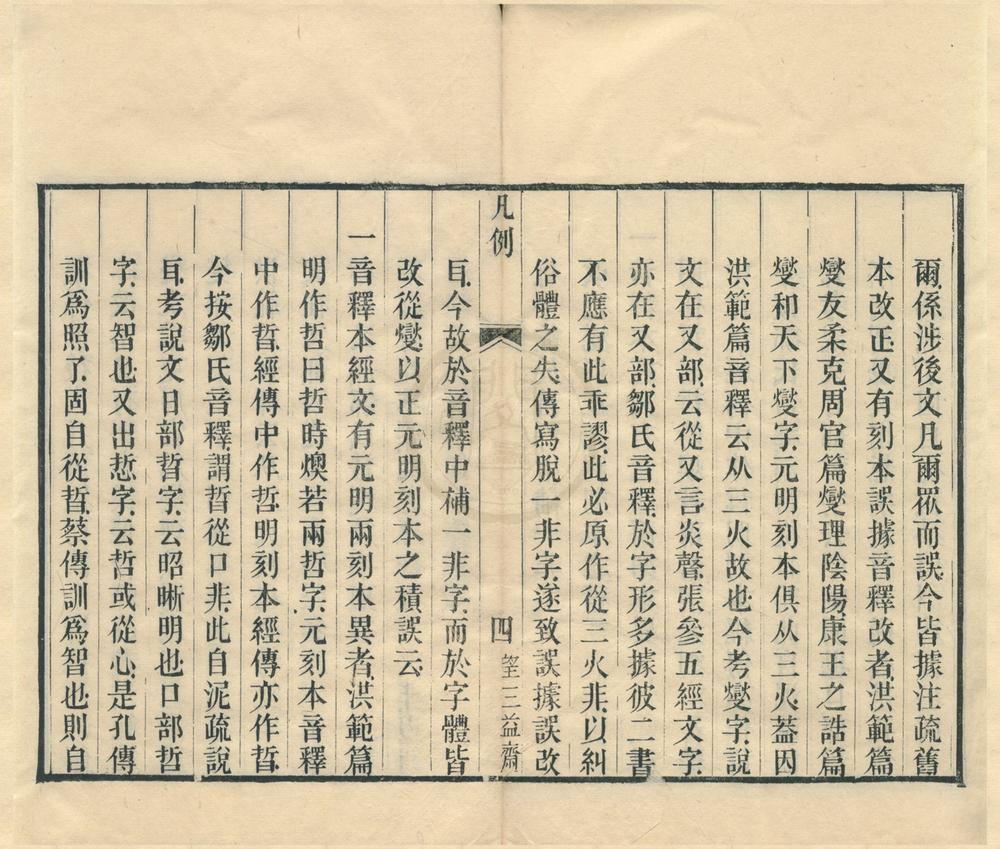 爾係涉後文凡爾眾而誤今皆據注疏舊
本改正又有刻本誤據音釋改者洪範篇
燮友柔克周官篇燮理陰陽康王之誥篇
燮和天下燮字元明刻本俱从三火葢因
洪範篇音釋云从三火故也今考燮字說
文在又部云從又言炎聲張參五經文字
亦在又部鄒氏音釋於字形多據彼二書
不應有此乖謬此必原作從三火非以糾
俗體之失傳寫脫一非字遂致誤據誤改
凡例
四
望三益齋
耳今故於音釋中補一非字而於字體皆
改從燮以正元明刻本之積誤云
一音釋本經文有元明兩刻本異者洪範篇
明作哲曰哲時燠若兩哲字元刻本音釋
中作晢經傳中作哲明刻本經傳亦作晢
今按鄒氏音釋謂晢從口非此自泥疏說
耳考說文日部晢字云昭晰明也口部哲
字云智也又出悊字云哲或從心是孔傳
訓爲照了固自從晢蔡傳訓爲智也則自